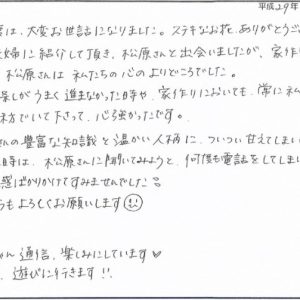 平成29年
は、大変お世話になりました。ステキなお花、ありがとうご
夫婦に紹介して頂き、松原さんと出会いましたが、家作り
松原さんは私たちの心のよりどころでした。
探しがうまく進まなかった時や、家作りにおいても、常に私
味方でいて下さって、心強かったです。
さんの豊富な知識と温かい人柄に、ついつい甘えてしまい
時は、松原さんに聞いてみようと、何度も電話をしてしま
惑ばかりかけてすみませんでした。
もよろしくお願いします
ゃん通信、楽しみにしています♥
、遊びに行きます!!